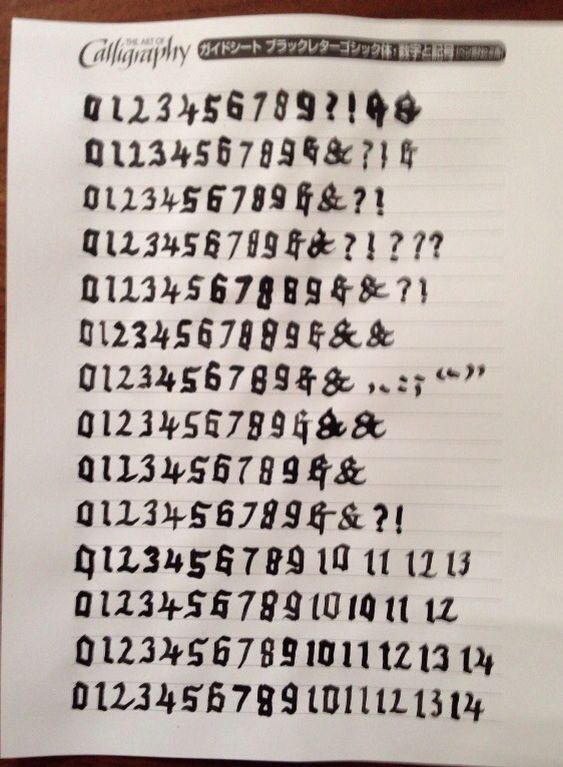 THE ART OF
Calligraphy ガイドシート ブラックレターゴシック体・数字と記号
0123456789?!&&
0123456789&&?!&
0123456789&&?!
0123456789&&?!???
01234567889&&?!
01234567889&&&
0123456789&& ,.-:; “”
0123456789&&&
0123456789&&
0123456789&&?!
0123456789 10 11 12 13
0123456789 10 10 11 12
0123456789 10 11 12 13 14
0123456789 10 11 12 13 14